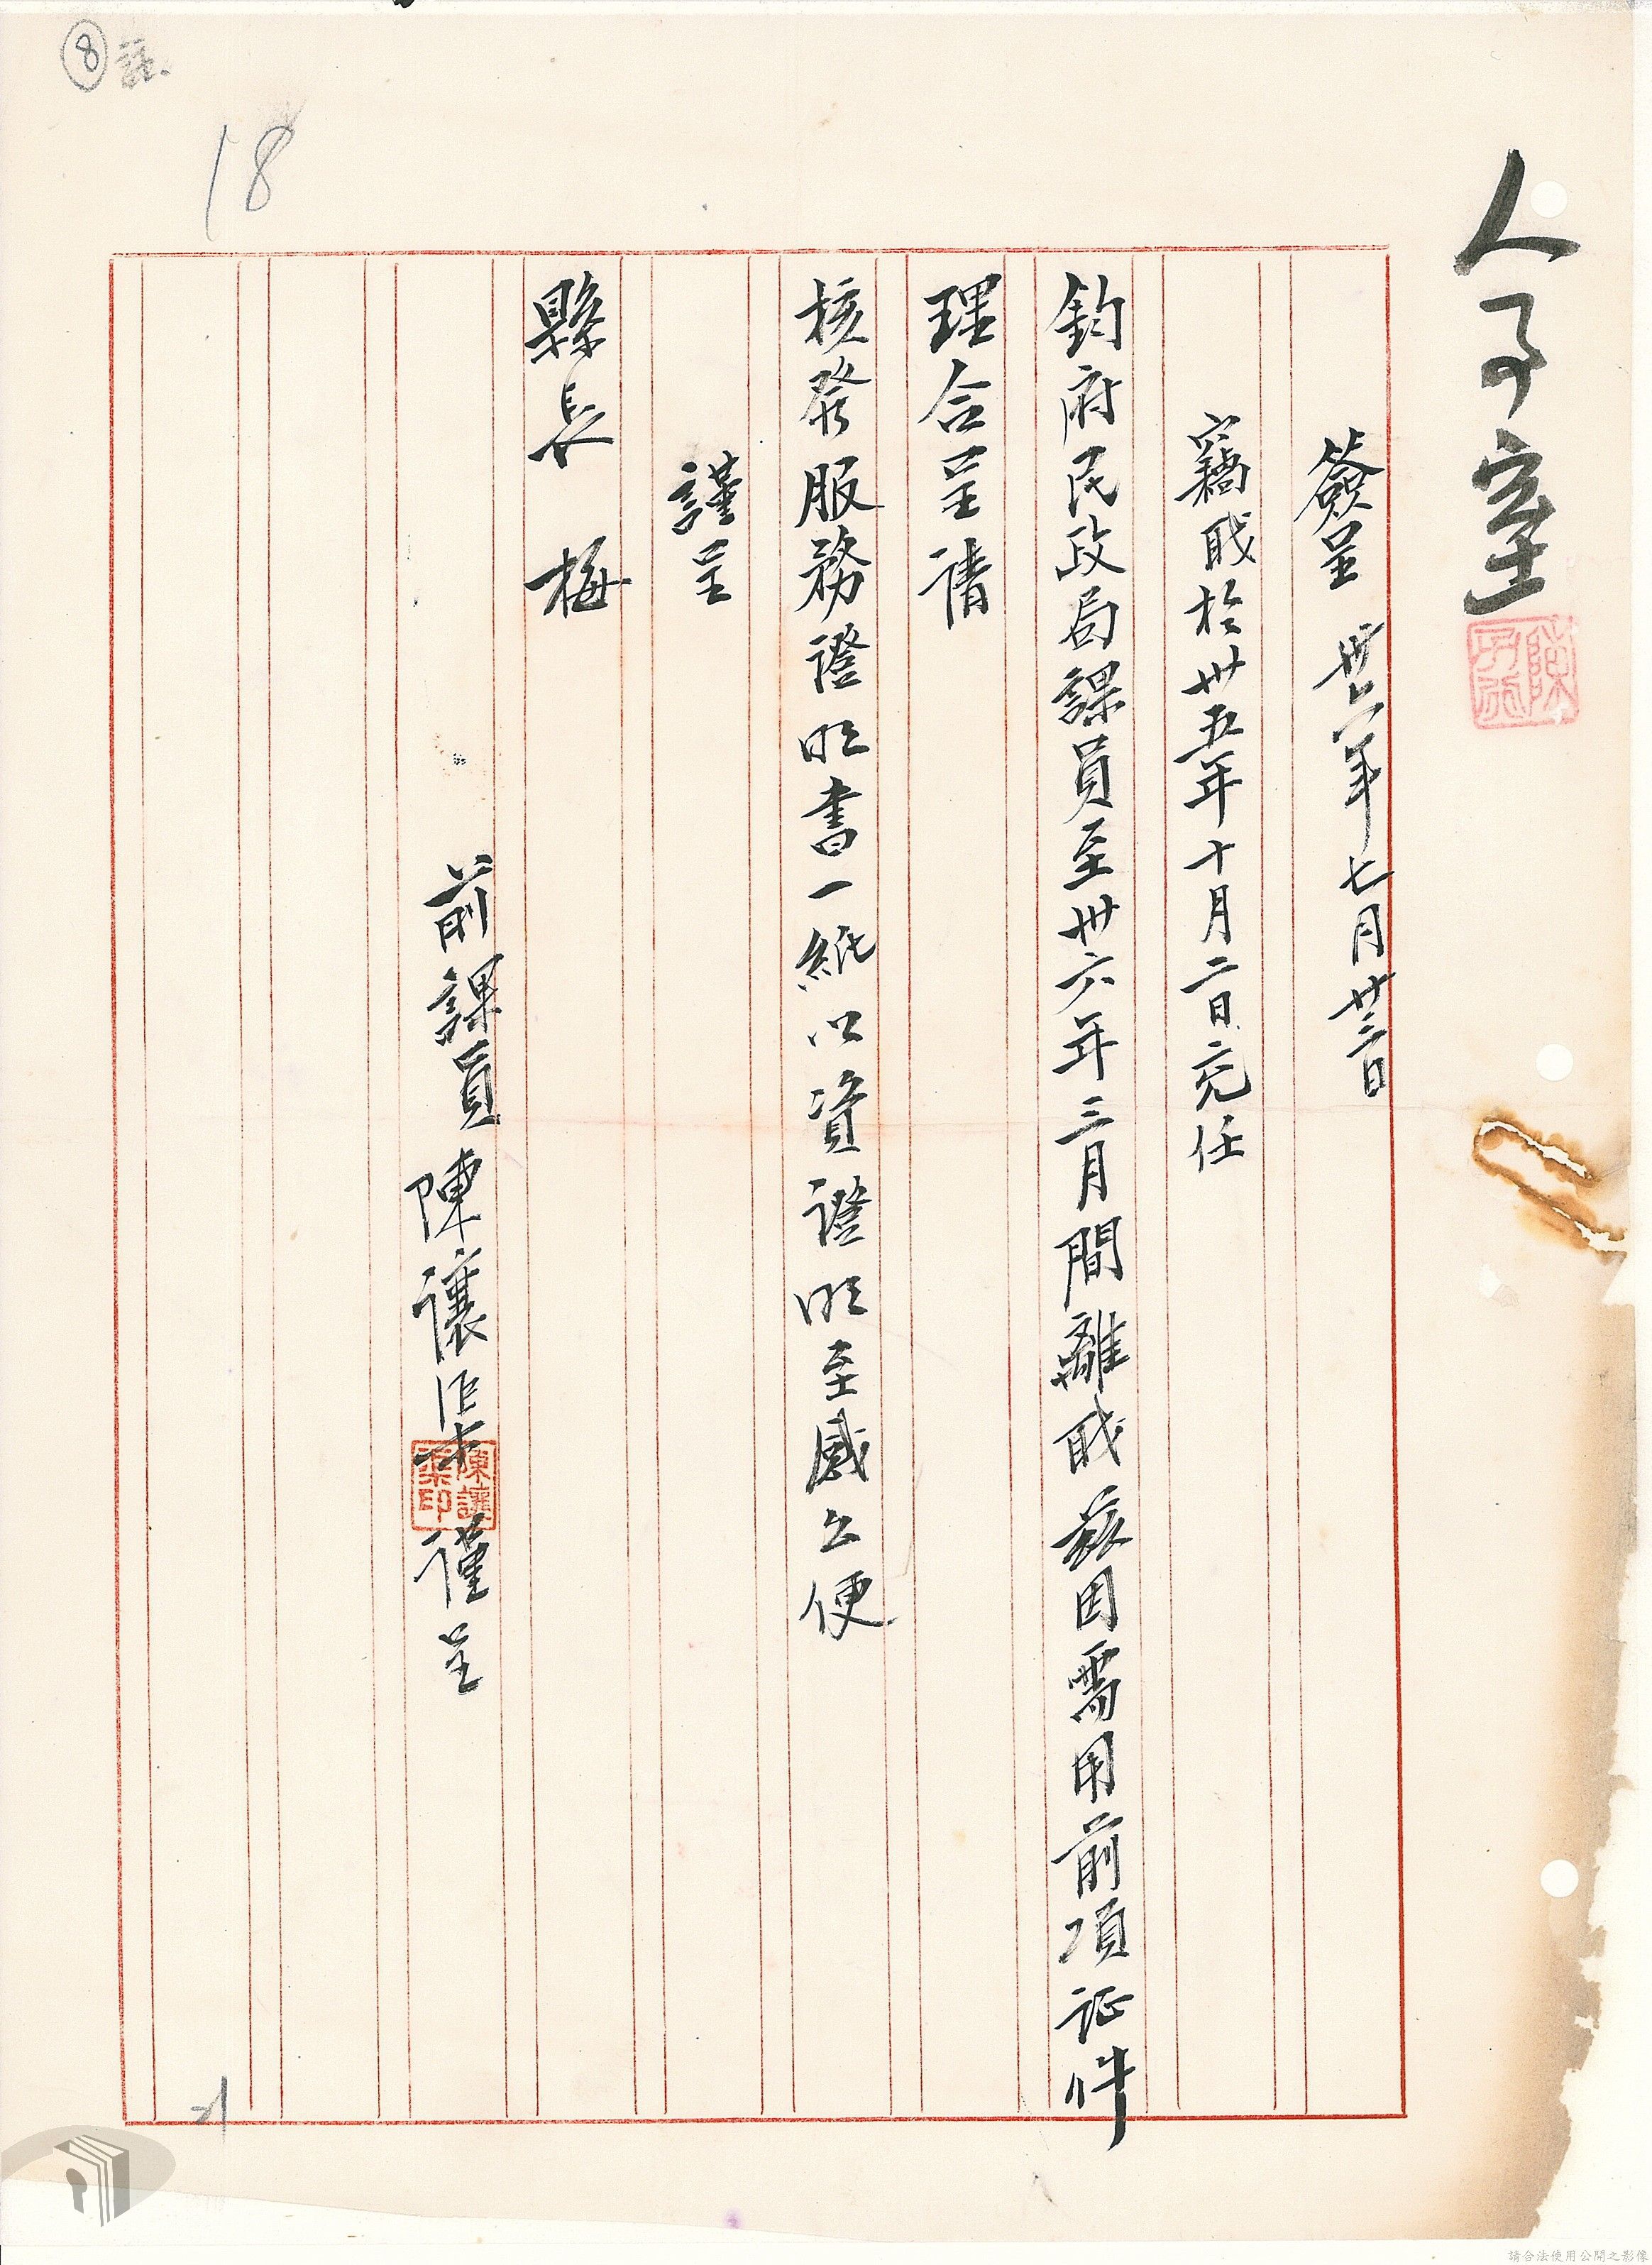 人事室
簽呈 卅六年七月廿二日
竊戝於卅五年十月二日充任
鈞府民政局課員至卅六年三月間離戝茲因需用前項证件
理合呈請
核發服務證明書一紙以資證明至感公便
謹呈
縣長 梅
前課員陳讓渠謹呈
陳讓渠印
8
18
21
請合法使用公開之影像